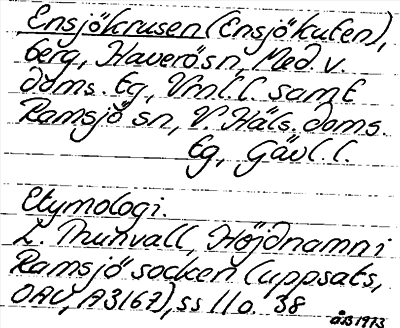 Ensjökrusen (Ensjökuten),
berg, Haverö sn, Med. v.
doms. tg, Vrnl. l. samt
Ramsjö sn, V. Häls. doms.
tg, Gävl. l.
Etymologi.
L. Thunvall, Höjdnamn i
Ramsjö socken (uppsats,
OAU, A3167), ss 11 o. 38
ÅB 1973